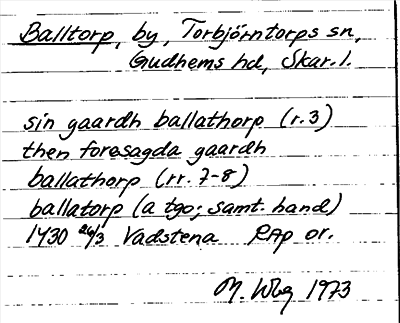 Balltorp, by, Torbjörntorps sn,
Gudhems hd, Skar. l.
sin gaardh ballathorp (r. 3)
then foresagda gaardh
ballathorp (rr. 7-8)
ballatorp (a tgo; samt. hand)
1430 26/3 Vadstena RAp or.
M. Wbg 1973